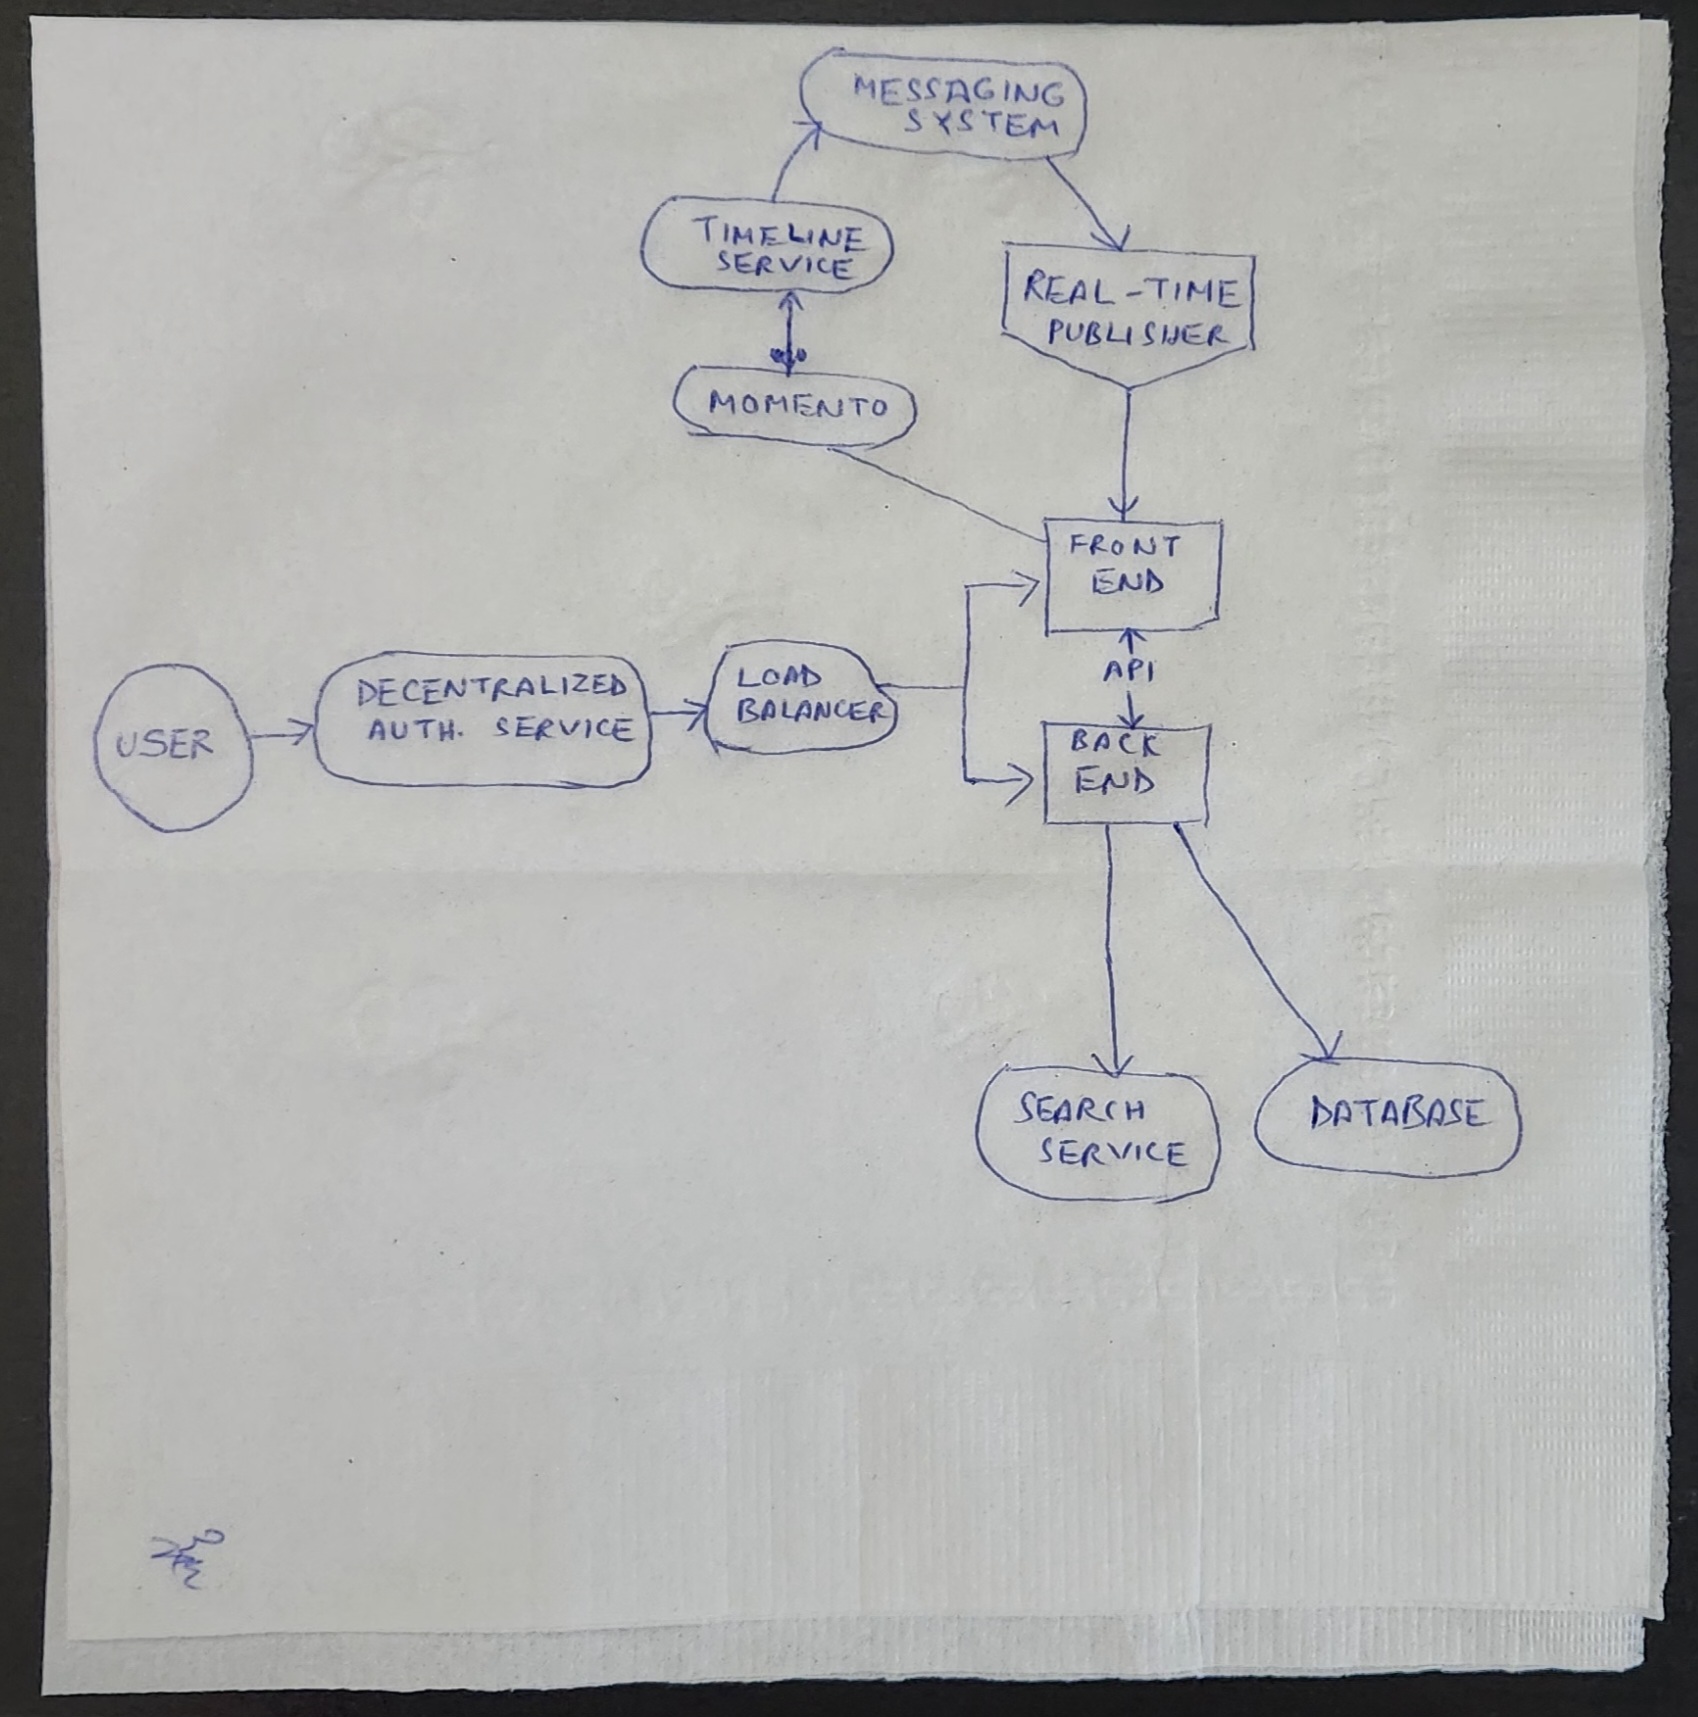 MESSAGING
SYSTEM
TIMELINE
SERVICE
REAL-TIME
PUBLISHER
MOMENTO
FRONT
END
API
USER
DECENTRALIZED
AUTH. SERVICE
LOAD
BALANCER
BACK
END
SEARCH
SERVICE
DATABASE